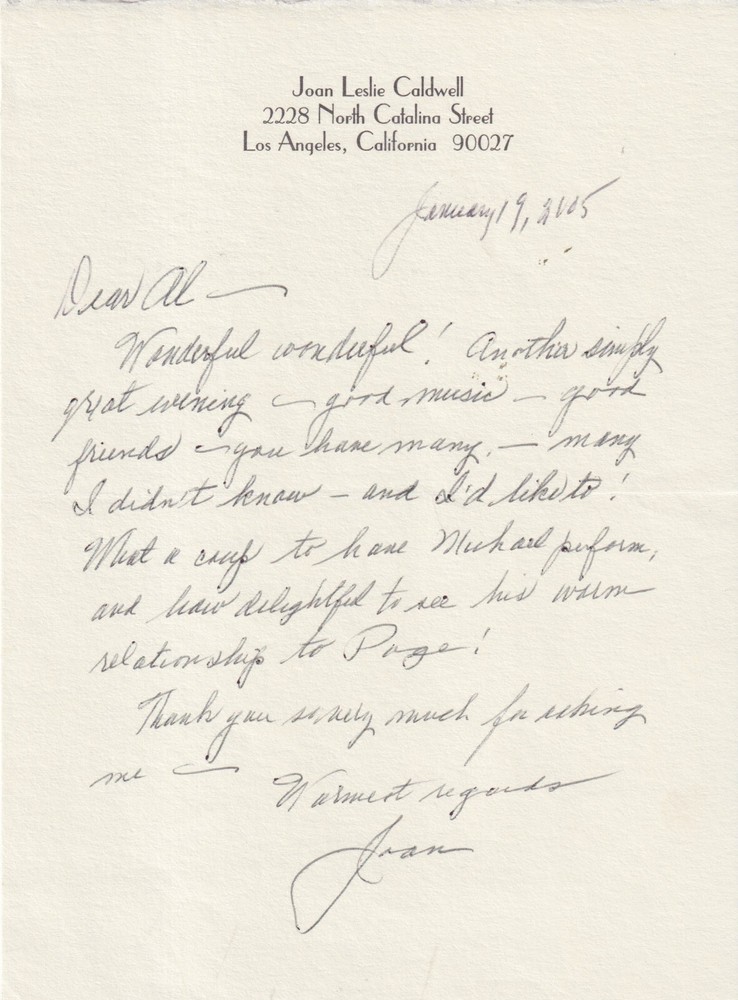 Joan Leslie Caldwell
2228 North Catalina Street
Los Angeles, California 90027
January 19, 2005
Dear Al —
Wonderful wonderful! Another simply
great evening — good music — good
friends — you have many, — many
I didn't know — and I'd like to!
What a coup to have Michael perform,
and how delightful to see his warm
relationship to Page!
Thank you so very much for asking
me —
Warmest regards
Joan